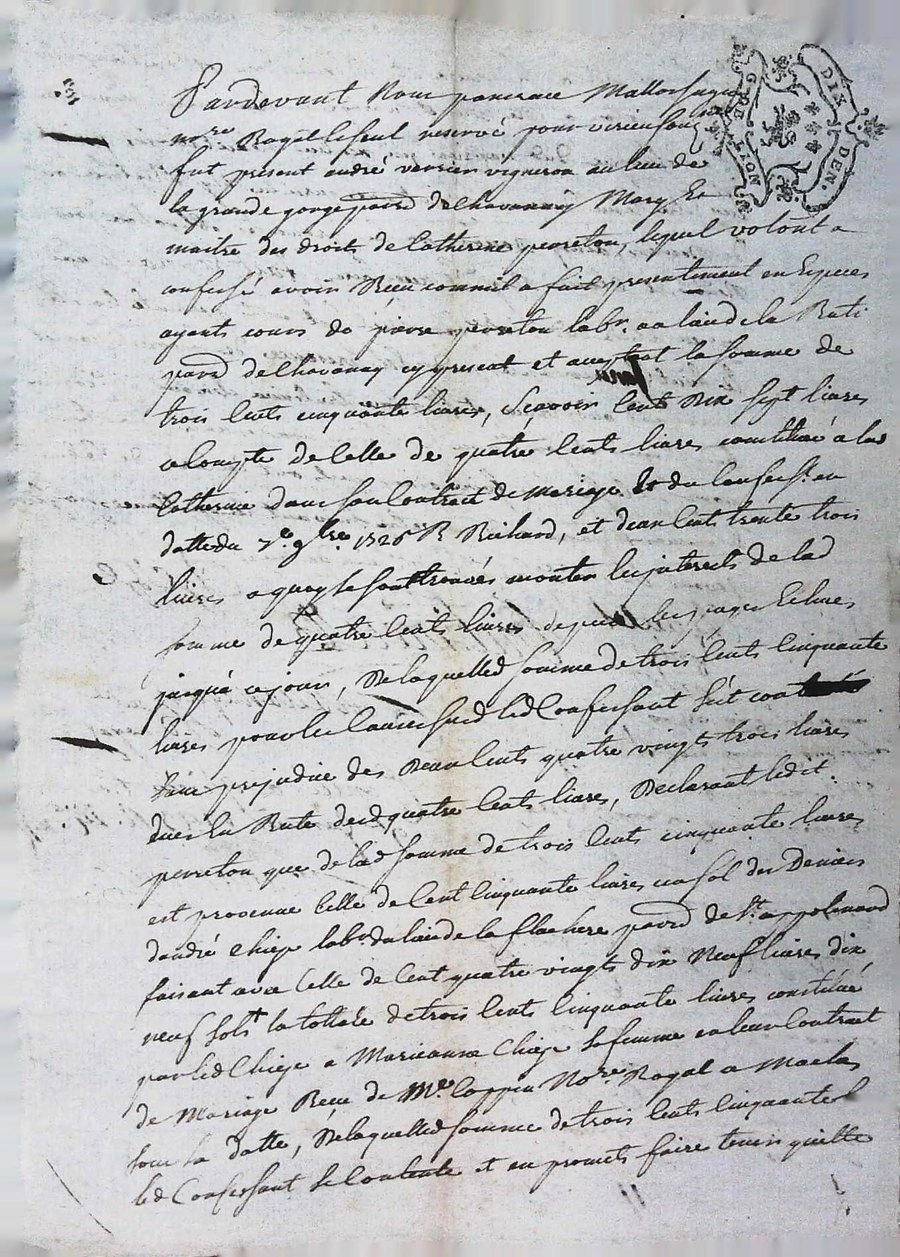 Pardevant Nous pancrace Mallossagne
no.re Royal le seul reservé pour virieu sou
fut present andré verrier vigneron au lieu de
la grande gorge parr.d de Chavannay Mary Et
maitre des droits de Catherine perreton, lequel volont a
confessé avoir Receu comm'il a fait presentement en Especes
ayants cours de pierre perreton lab.r au lieu de la Rati
parr.d de Chavanay cy present et acceptant la somme de
trois Cents cinquante livres, Scavoir Cent Dix sept livres
a Compte de Celle de quatre Cents livres constitué a lad
Catherine dans son Contract de Mariage Et du Confess.t en
datte du 7.e 9bre. 1726 R Richard, et deux Cent trente trois
livres a quoy se sont trouvés monter les interests de lad
somme de quatre Cents livres depuis les pages Echues
jusqu'a ce jour, De laquelled somme de trois Cents Cinquante
livres pour les causes susd led Confessant s'est contenté
sans prejudice des Deux Cents quatre vingts trois livres
dues en Reste desd quatre Cents livres, Declarant ledit
perreton que de lad somme de trois Cents cinquante livres
est provenue Celle de Cent Cinquante livres un sol des Deniers
d'andré Chieze lab.r du lieu de la flachere parr.d de S.t appolinard
faisant avec Celle de Cent quatre vingts dix Neuf livres dix
neuf sols la tottale de trois Cents Cinquante livres constituée
par led Chieze a Marianne Chieze sa femme en leur Contract
de Mariage Receu de M.e Coppin No.re Royal a Maclas
sous sa datte, De laquelled somme de trois Cents Cinquante l
led Confessant se Contente et en promets faire tenir quitte
G. DE LYON
DIX DEN.